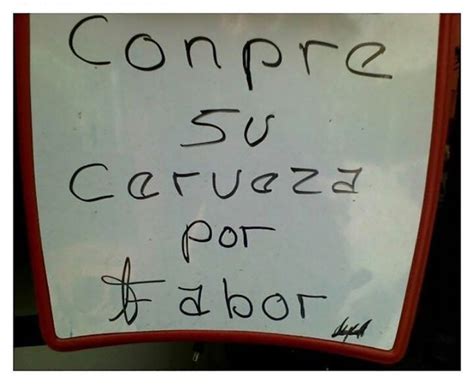 Conpre
su
cerveza
por
fabor